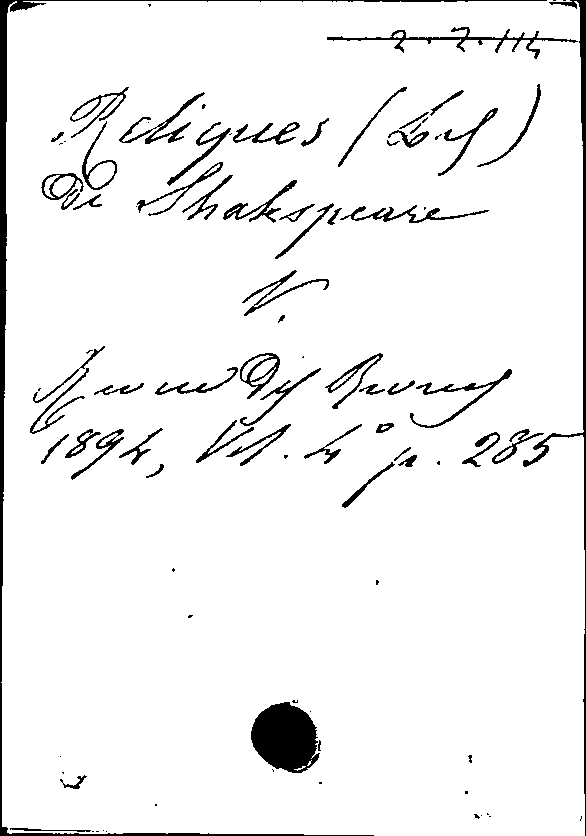 2.7.114
Reliques (Les)
De Shakspeare
V.
Revue Des Revues
1894, Vol. 4° p. 285